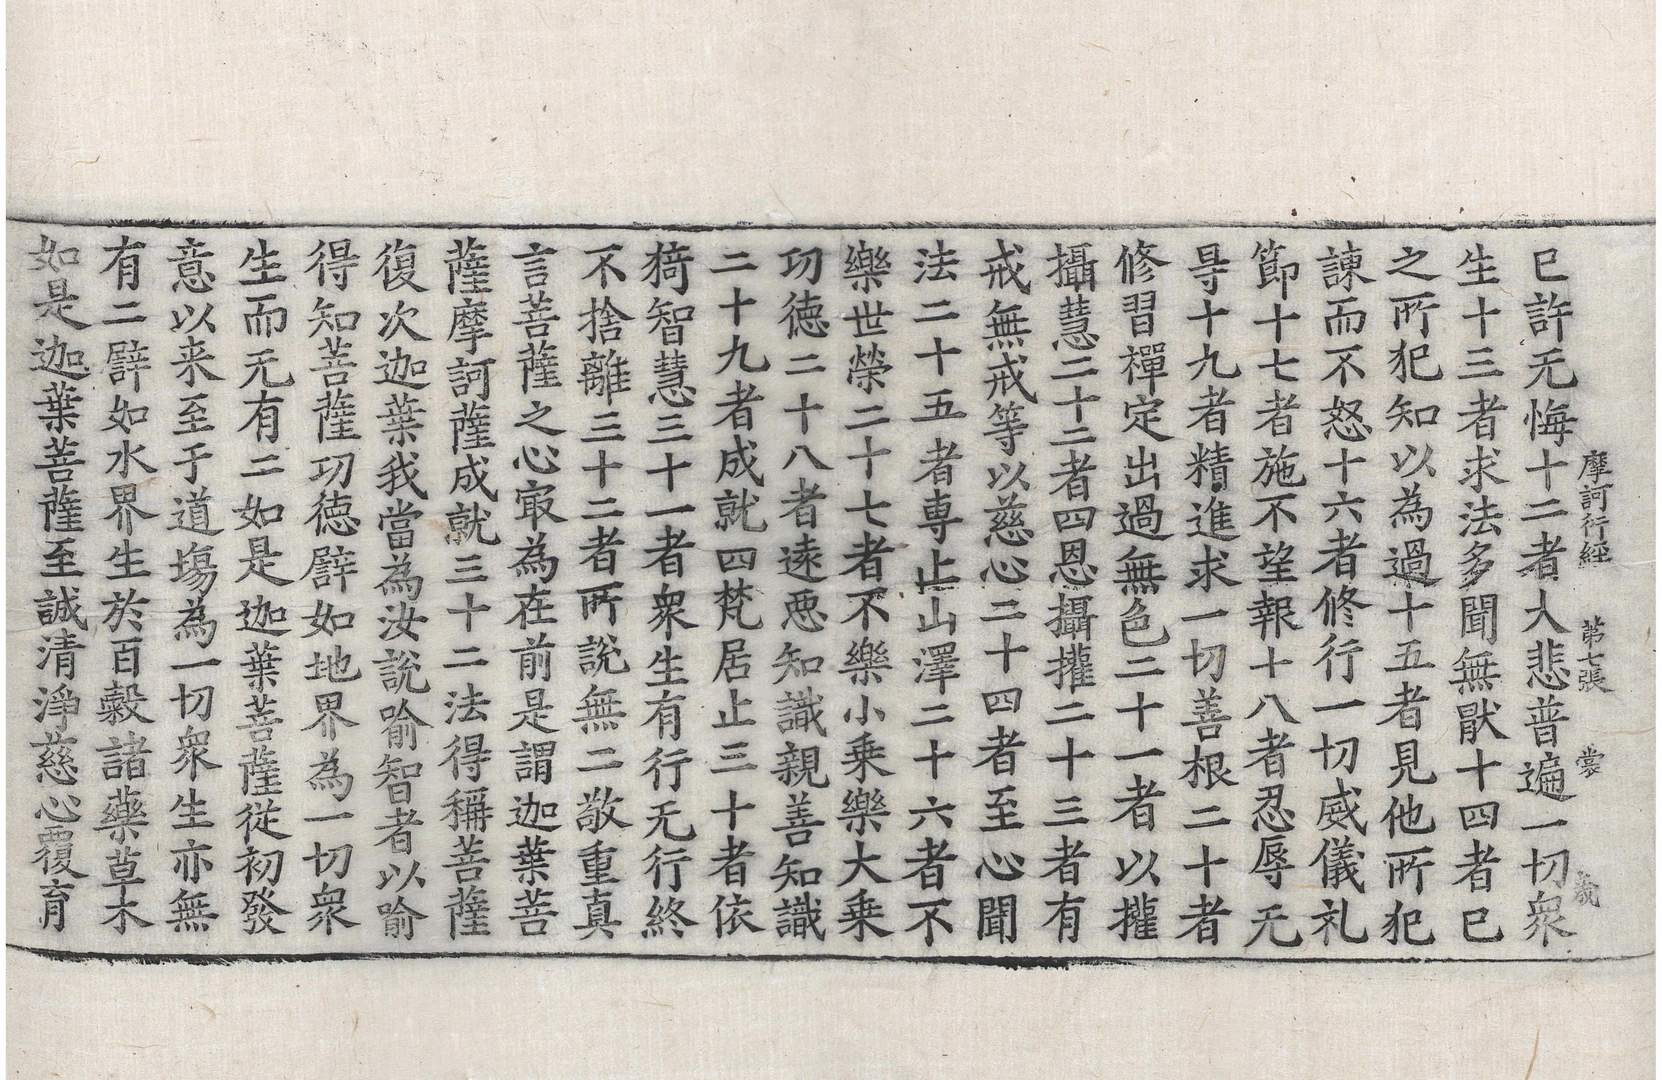 摩訶衍經 第七張 裳
已許无悔十二者大悲普遍一切衆
生十三者求法多聞無猒十四者已
之所犯知以為過十五者見他所犯
諫而不怒十六者修行一切威儀礼
節十七者施不望報十八者忍辱无
㝵十九者精進求一切善根二十者
修習禪定出過無色二十一者以攉
攝慧二十二者四恩攝攉二十三者有
戒無戒等以慈心二十四者至心聞
法二十五者専止山澤二十六者不
樂世榮二十七者不樂小乗樂大乗
功徳二十八者遠恶知識親善知識
二十九者成就四梵居止三十者依
猗智慧三十一者衆生有行无行終
不捨離三十二者所說無二敬重真
言菩薩之心㝡為在前是謂迦葉菩
薩摩訶薩成就三十二法得稱菩薩
復次迦葉我當為汝說喻智者以喻
得知菩薩功徳譬如地界為一切衆
生而无有二如是迦葉菩薩從初發
意以来至于道塲為一切衆生亦無
有二譬如水界生於百穀諸藥草木
如是迦葉菩薩至誠清淨慈心覆育